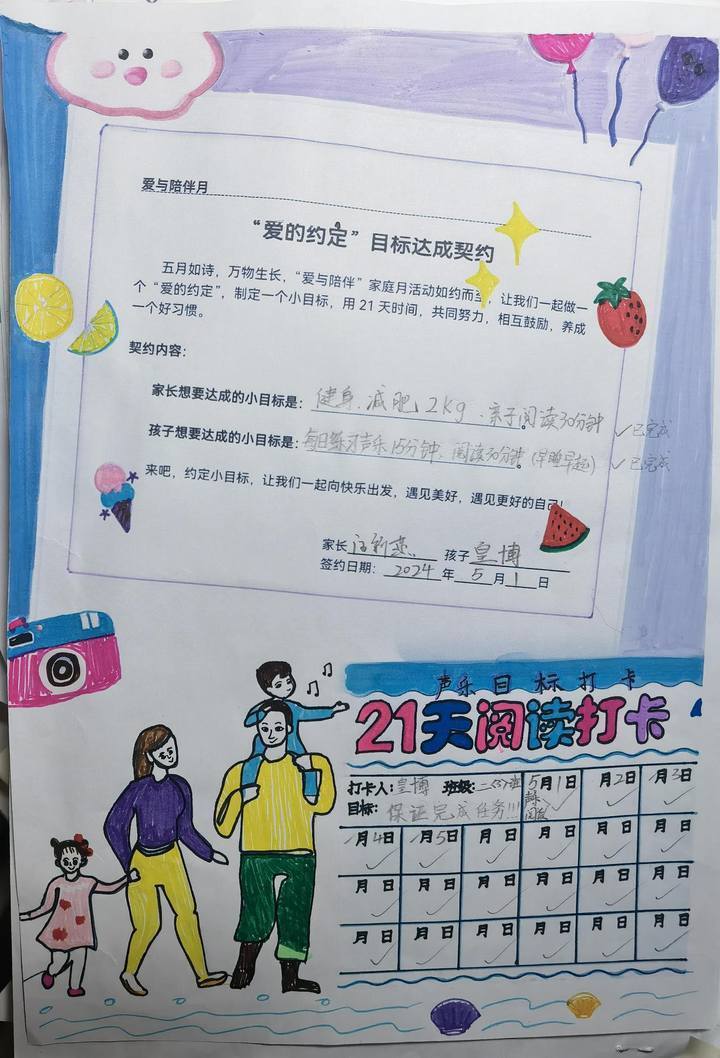 爱与陪伴月
“爱的约定”目标达成契约
五月如诗，万物生长，“爱与陪伴”家庭月活动如约而至，让我们一起做一
个“爱的约定”，制定一个小目标，用 21 天时间，共同努力，相互鼓励，养成
一个好习惯。
契约内容：
家长想要达成的小目标是：健身、减肥2Kg、亲子阅读30分钟 ✓已完成
孩子想要达成的小目标是：每日练习声乐15分钟、阅读30分钟。(早睡早起) ✓已完成
来吧，约定小目标，让我们一起向快乐出发，遇见美好，遇见更好的自己！
家长 孩子 皇博
签约日期：2024年5月1日
声乐目标打卡
21天阅读打卡
打卡人：皇博 班级：二(5)班 5月1日 月2日 月3日
目标：保证完成任务!!! 声乐 阅读
月4日 月5日 月 日 月 日 月 日 月 日
月 日 月 日 月 日 月 日 月 日 月 日
月 日 月 日 月 日 月 日 月 日 月 日